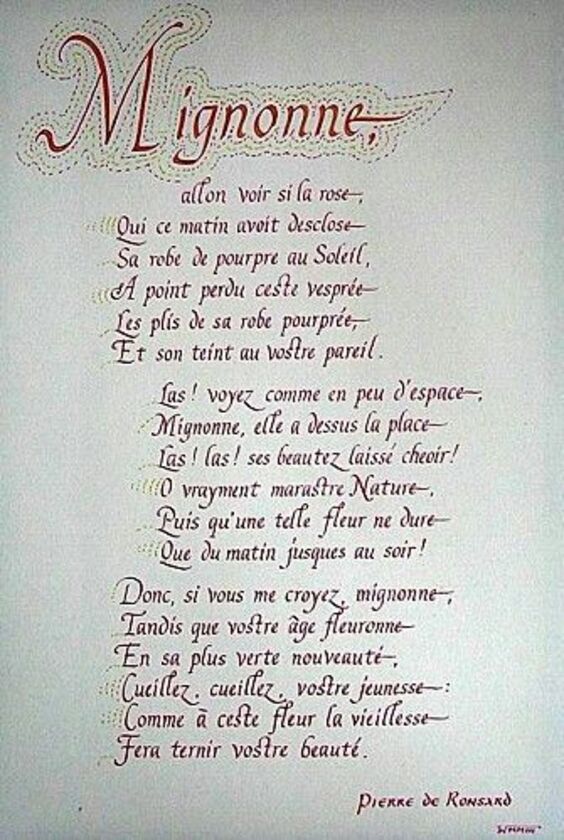 Mignonne,
allon voir si la rose,
Qui ce matin avoit desclose
Sa robe de pourpre au Soleil,
A point perdu ceste vesprée
Les plis de sa robe pourprée,
Et son teint au vostre pareil.
Las! voyez comme en peu d'espace,
Mignonne, elle a dessus la place
Las! las! ses beautez laissé cheoir!
O vrayment marastre Nature,
Puis qu'une telle fleur ne dure
Que du matin jusques au soir!
Donc, si vous me croyez, mignonne,
Tandis que vostre âge fleuronne
En sa plus verte nouveauté,
Cueillez, cueillez, vostre jeunesse:
Comme à ceste fleur la vieillesse
Fera ternir vostre beauté.
Pierre de Ronsard